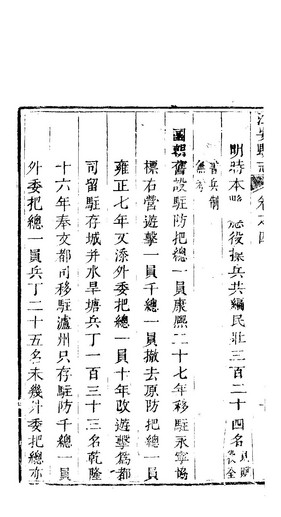 江安縣志 卷之四
明時本縣 施役操兵共編民壯三百二十四名
舊兵制
無考
國朝舊設駐防把總一員康熙二十七年移駐永寧協
標右營遊擊一員千總一員撤去原防把總一員
雍正七年又添外委把總一員十年改遊擊爲都
司留駐存城并水旱塘兵丁一百三十三名乾隆
十六年奉文都司移駐瀘州只存駐防千總一員
外委把總一員兵丁二十五名未幾外委把總亦